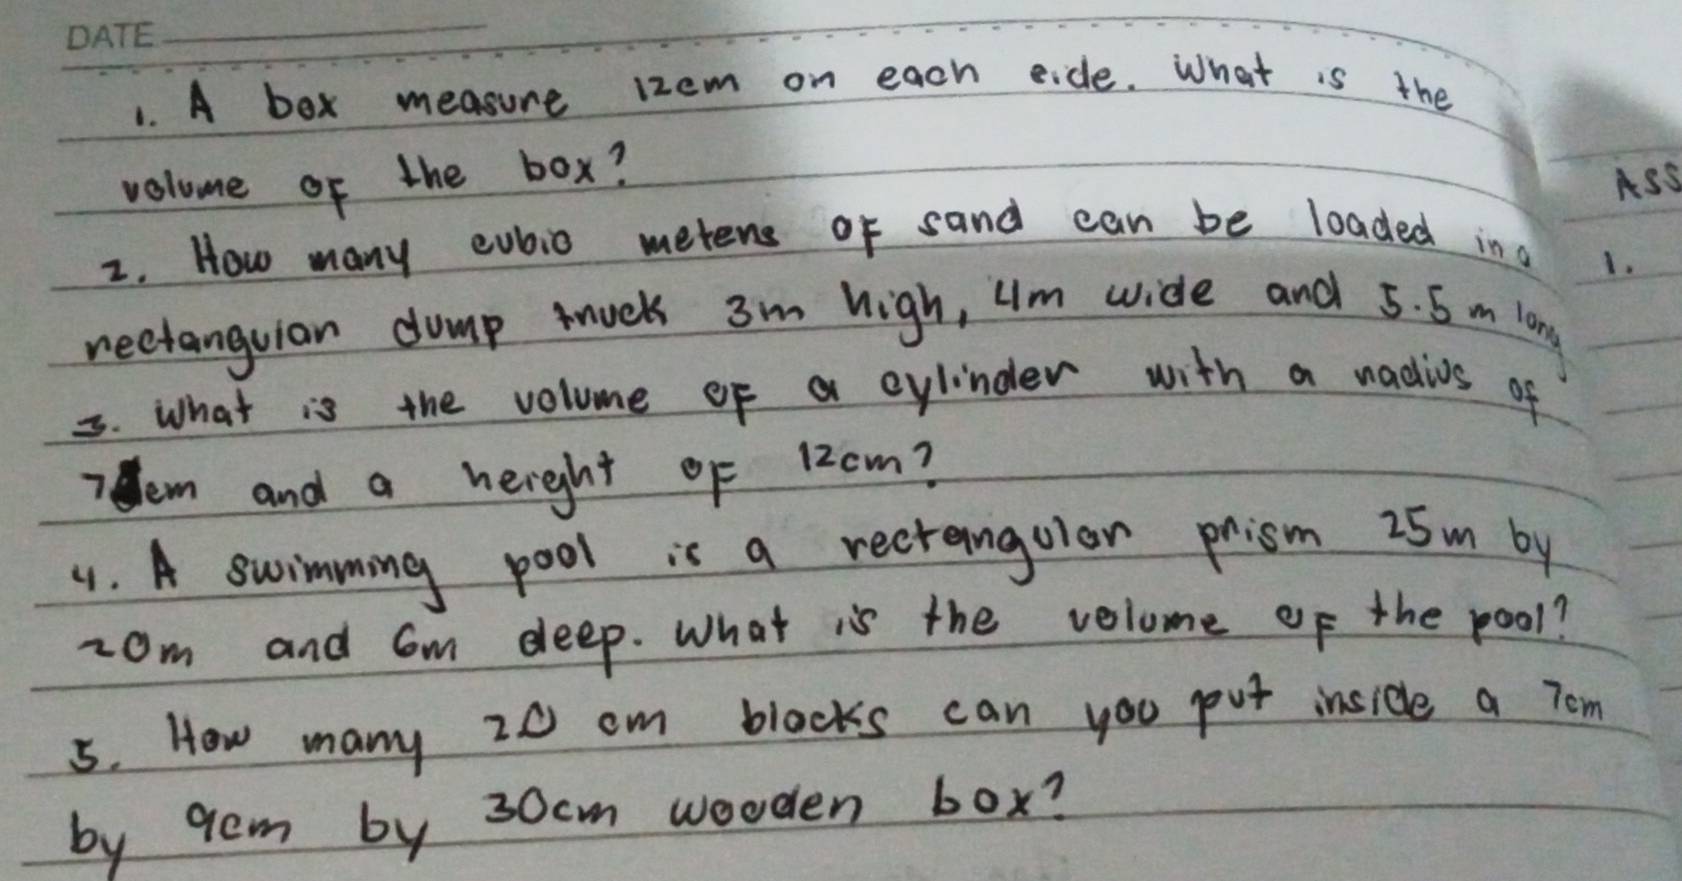 DATE
1. A box measure 12cm on each side. What is the
volume of the box?
2. How many cubic meters of sand can be loaded in a
rectangular dump truck 3m high, 4m wide and 5.5 m long
3. What is the volume of a cylinder with a radius of
7cm and a height of 12cm?
4. A swimming pool is a rectangular prism 25m by
20m and 6m deep. What is the volume of the pool?
5. How many 20 cm blocks can you put inside a 7cm
by 9cm by 30cm wooden box?
ASS
1.